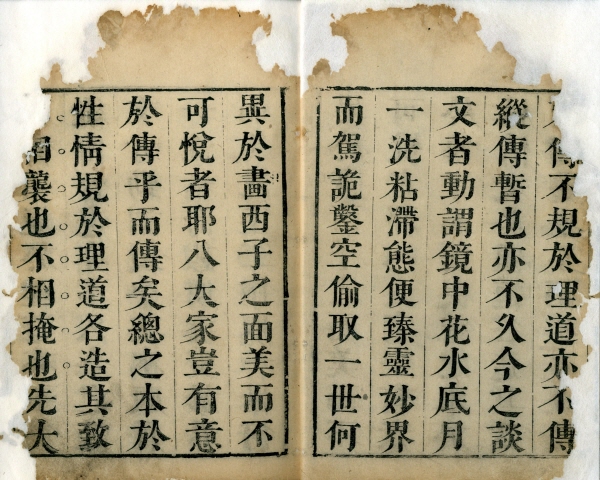 傳不規於理道亦不傳
縱傳暫也亦不久今之談
文者動謂鏡中花水底月
一洗粘滯態便臻靈妙界
而駕詭鑿空偷取一世何
異於畵西子之面美而不
可悅者耶八大家豈有意
於傳乎而傳矣總之本於
性情規於理道各造其致
相襲也不相掩也先大